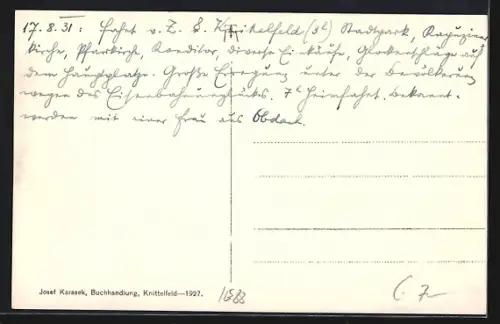 17.8.31: Fahrt v. Z. S. Knittelfeld (3h) Stadtpark, Kapuziner
kirche, Pfarrkirche, Konditor, diverse Einkäufe, Glockenschläge auf
dem Hauptplatze. Große Erregung unter der Bevölkerung
wegen des Eisenbahnunglücks. 7h Heimfahrt. Bekannt-
werden mit einer Frau aus Obdach.
Josef Karasek, Buchhandlung, Knittelfeld—1927.